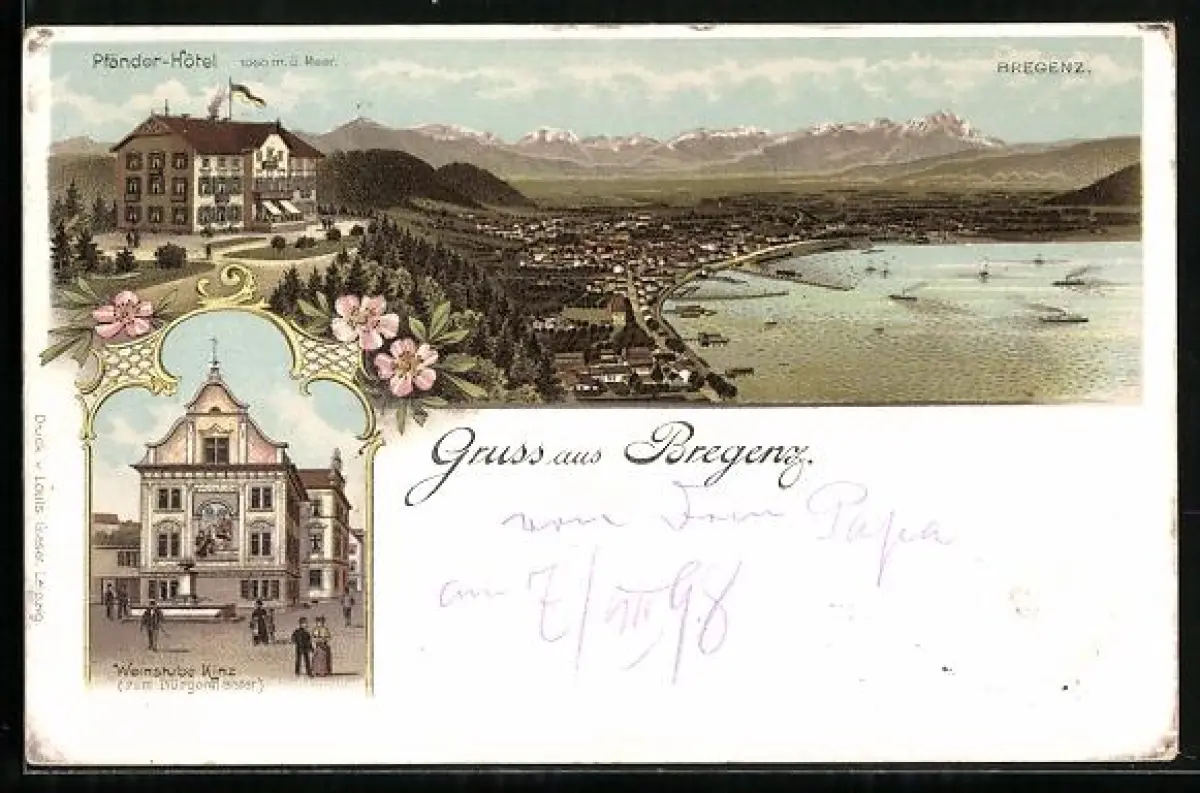 Pfänder-Hôtel 1060 m. ü. Meer.
BREGENZ.
Gruss aus Bregenz.
von Dein Papa
am 7/VIII 98
Weinstube Kinz
(zum Bürgermeister)
Druck v. Louis Glaser, Leipzig.